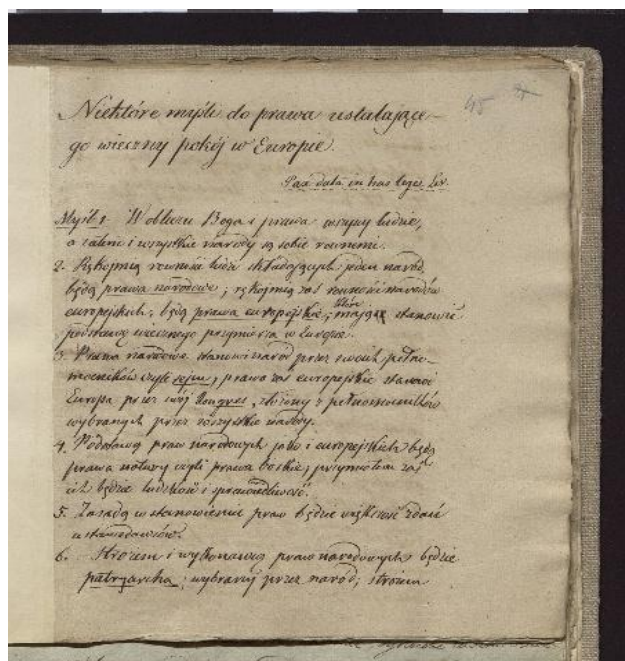 45
Niektóre myśli do prawa ustalające-
go wieczny pokój w Europie.
Pax data in has leges Liv.
Myśl 1. W obliczu Boga i prawa wszyscy ludzie,
a zatem i wszystkie narody są sobie równemi.
2. Rękojmią równości ludzi składających jeden naród,
będą prawa narodowe; rękojmią zaś równości narodów
europejskich, będą prawa europejskie; które mające stanowić
podstawę wiecznego przymierza w Europie.
3. Prawa narodowe stanowi naród przez swoich pełno-
mocników czyli sejm, prawa zaś europejskie stanowi
Europa przez swój kongres, złożony z pełnomocników
wybranych przez wszystkie narody.
4. Podstawą praw narodowych jako i europejskich będą
prawa natury czyli prawa boskie, przymiotem zaś
ich będzie ludzkość i sprawiedliwość.
5. Zasadą w stanowieniu praw będzie większość zdań
ustawodawców.
6. Stróżem i wykonawcą praw narodowych będzie
patryarcha, wybrany przez naród; stróżem